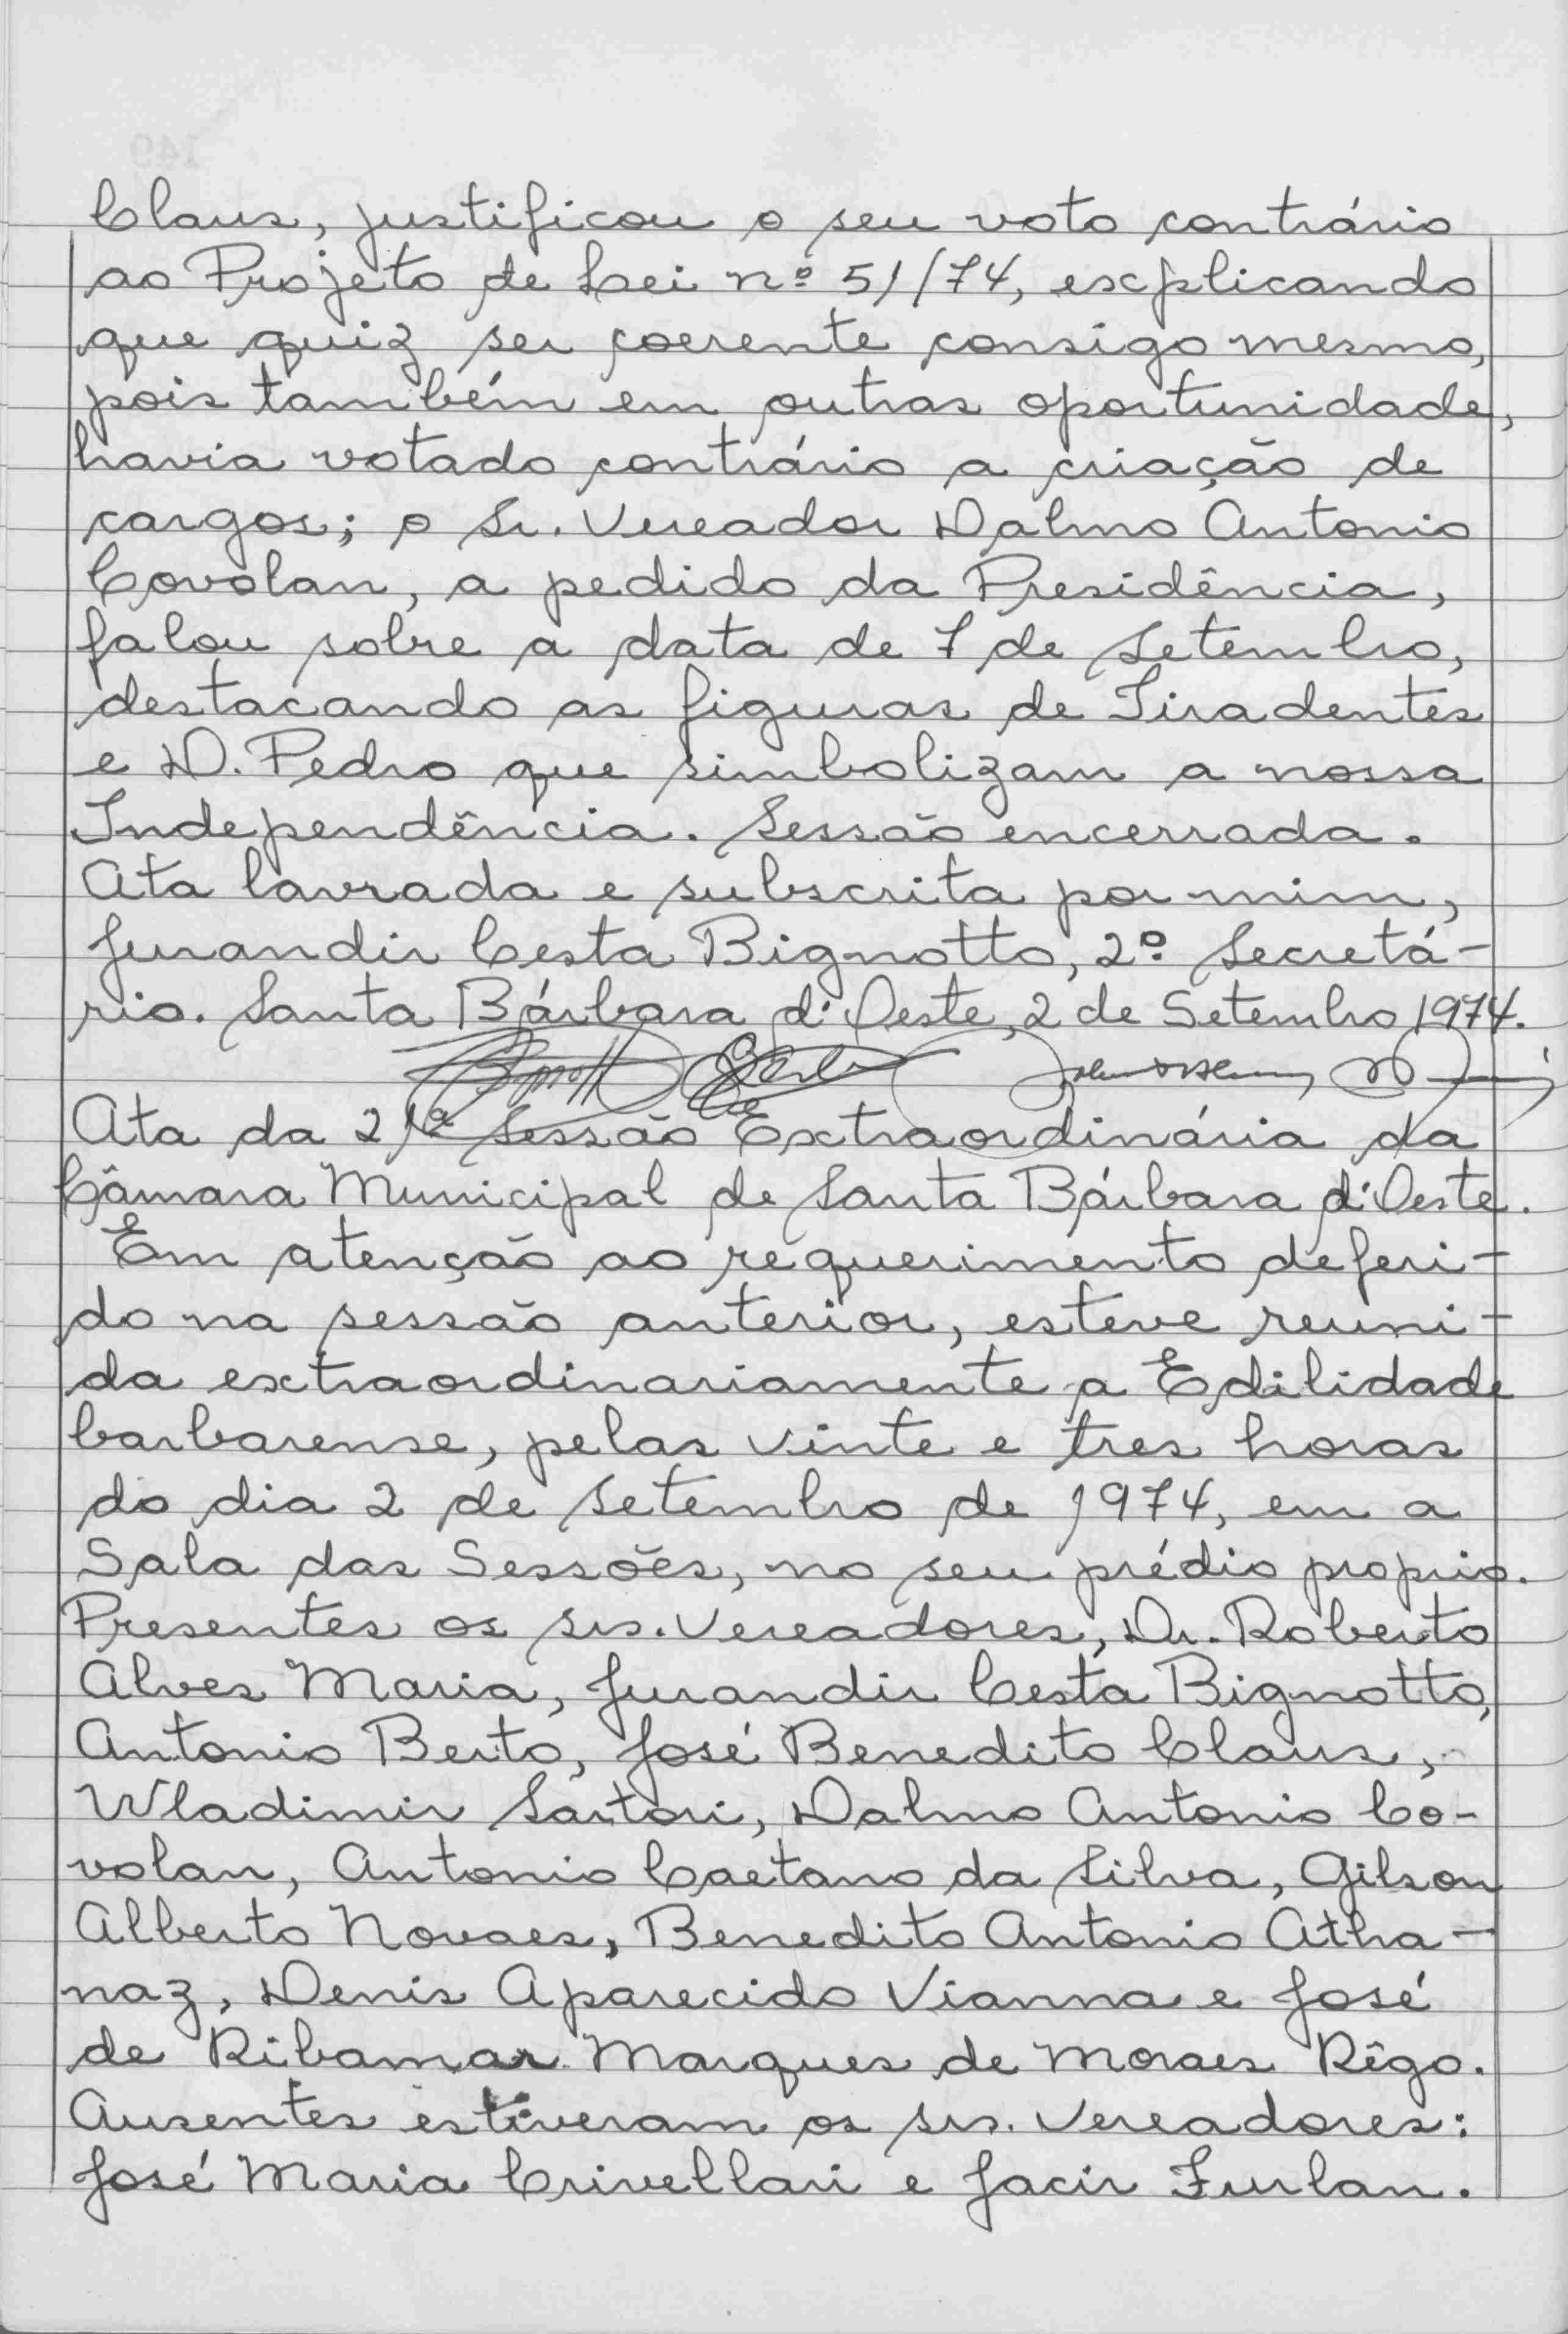 Claus, justificou o seu voto contrário
ao Projeto de Lei nº 51/74, explicando
que quiz ser coerente consigo mesmo,
pois também em outras oportunidade,
havia votado contrário a criação de
cargos; o Sr. Vereador Dalmo Antonio
Covolan, a pedido da Presidência,
falou sobre a data de 7 de Setembro,
destacando as figuras de Tiradentes
e D. Pedro que simbolizam a nossa
Independência. Sessão encerrada.
Ata lavrada e subscrita por mim,
Jurandir Cesta Bignotto, 2º Secretá-
rio. Santa Bárbara d'Oeste, 2 de Setembro 1974.
Ata da 21ª Sessão Extraordinária da
Câmara Municipal de Santa Bárbara d'Oeste.
Em atenção ao requerimento deferi-
do na sessão anterior, esteve reuni-
da extraordinariamente a Edilidade
barbarense, pelas vinte e tres horas
do dia 2 de Setembro de 1974, em a
Sala das Sessões, no seu prédio proprio.
Presentes os srs. Vereadores, Dr. Roberto
Alves Maria, Jurandir Cesta Bignotto,
Antonio Berto, José Benedito Claus,
Wladimir Sartori, Dalmo Antonio Co-
volan, Antonio Caetano da Silva, Gilson
Alberto Novaes, Benedito Antonio Atha-
naz, Denis Aparecido Vianna e José
de Ribamar Marques de Moraes Rêgo.
Ausentes estiveram os srs. Vereadores:
José Maria Crivellari e Jacir Furlan.